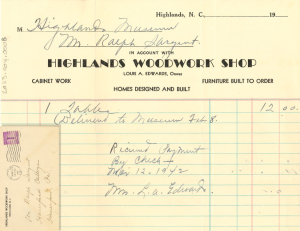 Highlands, N. C., 19
M Highlands Museum
% Mr. Ralph Sargent.
IN ACCOUNT WITH
HIGHLANDS WOODWORK SHOP
LOUIS A. EDWARDS, Owner
CABINET WORK FURNITURE BUILT TO ORDER
HOMES DESIGNED AND BUILT
1 Table 12 00
(Delivered to Museum Feb 8.
Received Payment
By Check
Mar 12, 1942
Mrs. L. A. Edwards
HIGHLANDS WOODWORK SHOP